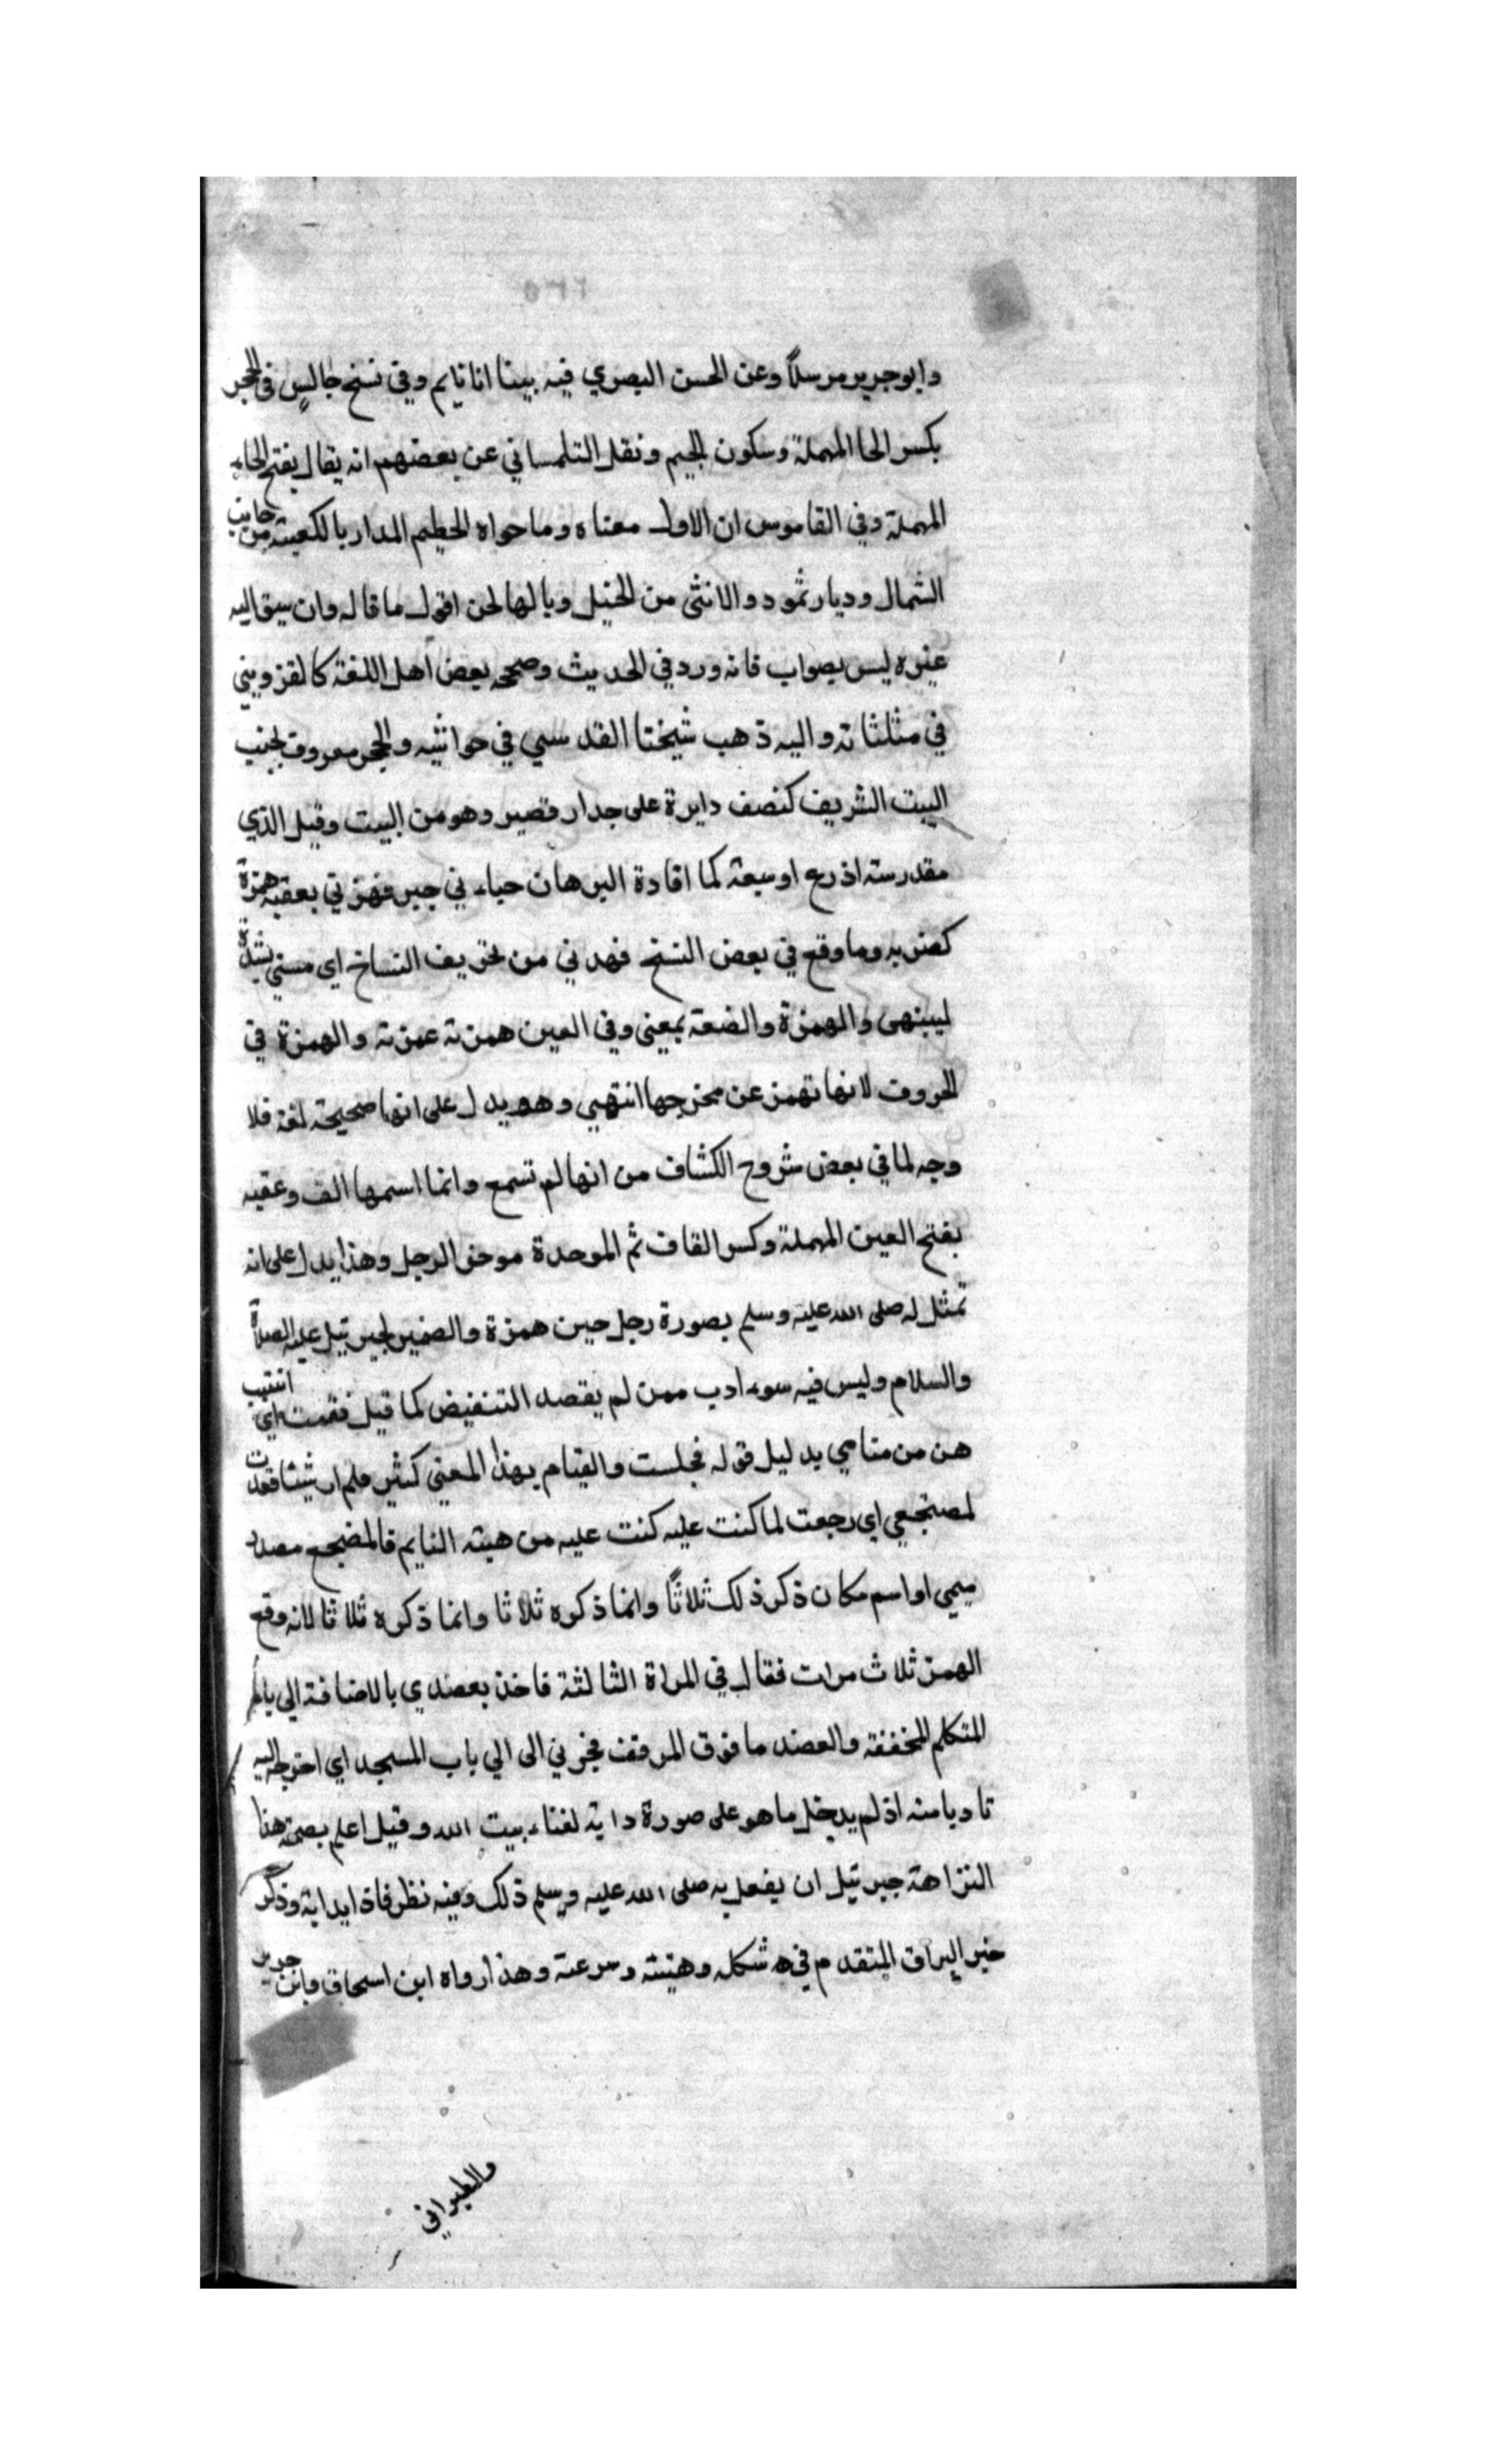 وابو جرير مرسلاً وعن الحسن البصري فيه بينا انا نايم وفي نسخ جالس في الحجر
بكسر الحا المهملة وسكون الجيم ونقل التلمساني عن بعضهم انه يقال بفتح الحاء
المهملة وفي القاموس ان الاول معناه وما حواه الحطيم المدار بالكعبة من جانب
الشمال وديار ثمود والانثى من الخيل وبالها لحن اقول ما قاله وان سبق اليه
غيره ليس بصواب فانه ورد في الحديث وصححه بعض اهل اللغة كالقزويني
في مثلثاته واليه ذهب شيخنا القدسي في حواشيه والحجر معروف بجنب
البيت الشريف كنصف دايرة على جدار قصير وهو من البيت وقيل الذي
مقدر ستة اذرع او سبعة كما افادة البرهان حياء ني جبر فهمزني بعقبه همزة
كضربه وما وقع في بعض النسخ فهدني من تحريف النساخ اي مسني بشدة
لينهى والهمزة والضعة بمعنى وفي العين همزته غمزته والهمزة في
الحروف لانها تهمز عن مخرجها انتهى وهو يدل على انها صحيحة لغة فلا
وجه لما في بعض شروح الكشاف من انها لم تسمع وانما اسمها الف وعقبه
بفتح العين المهملة وكسر القاف ثم الموحدة موخر الرجل وهذا يدل على انه
تمثل له صلى الله عليه وسلم بصورة رجل حين همزة والضمير لجبرئيل عليه الصلاة
والسلام وليس فيه سوء ادب ممن لم يقصد التنفيض كما قيل فقمت اي انتبهت
من منامي بدليل قوله فجلست والقيام بهذا المعنى كثير فلم ار شيئا فعدت
لمضجعي اي رجعت لما كنت عليه كنت عليه من هيئة النايم فالمضجع مصدر
ميمي او اسم مكان ذكر ذلك ثلاثاً وانما ذكره ثلاثا وانما ذكره ثلاثا لانه وقع
الهمز ثلاث مرات فقال في المراة الثالثة فاخذ بعضدي بالاضافة الى ياء
المتكلم المخففة والعضد ما فوق المرفق فجرني الى الي باب المسجد اي اخرجه اليه
تاديا منه اذ لم يدخل ما هو على صورة دابة لفناء بيت الله وقيل اعلم بصحة هذا
النزاهة جبرئيل ان يفعل به صلى الله عليه وسلم ذلك وفيه نظر فاذا بدابة وذكر
خبر البراق المتقدم في شكله وهيئته وسرعته وهذا رواه ابن اسحاق وابن جرير
والطبراني